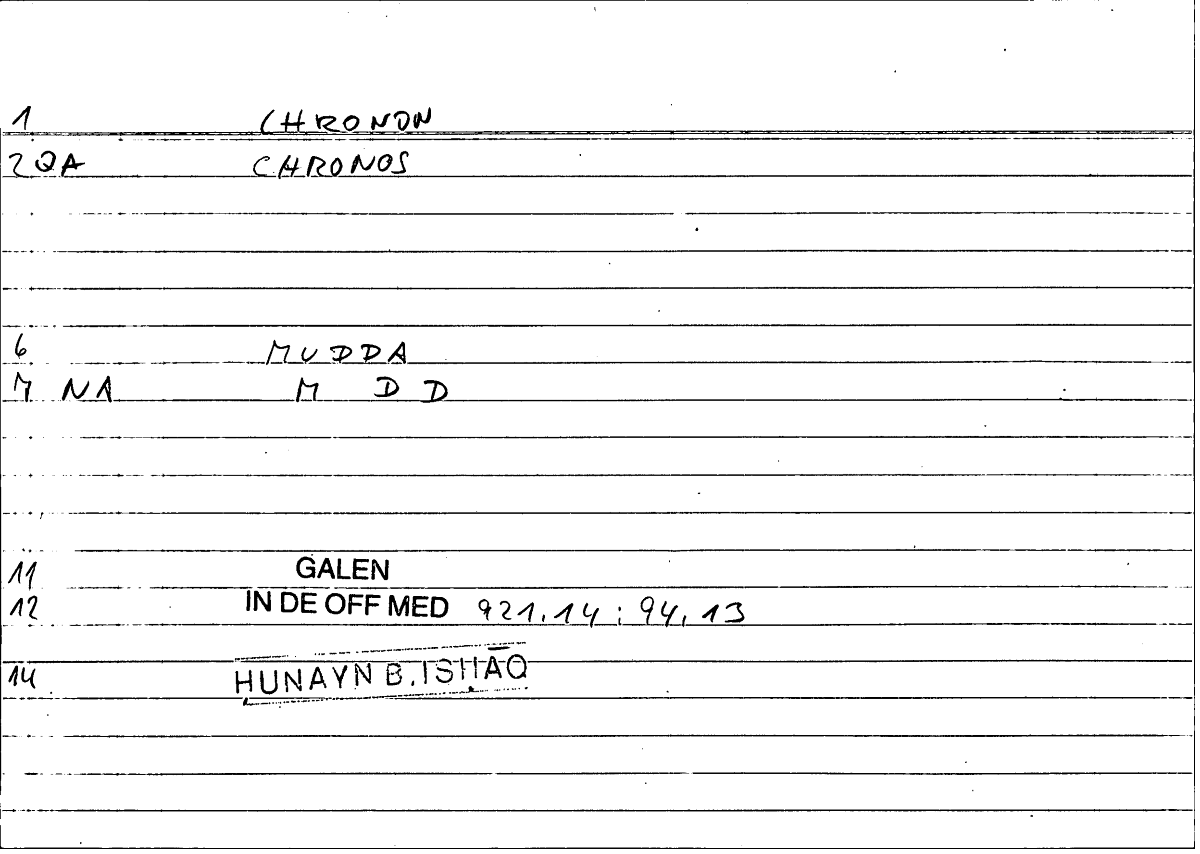 1 CHRONON
2 QA CHRONOS
6 MUDDA
7 NA M D D
11 GALEN
12 IN DE OFF MED 921.14 : 94.13
14 HUNAYN B. ISḤĀQ